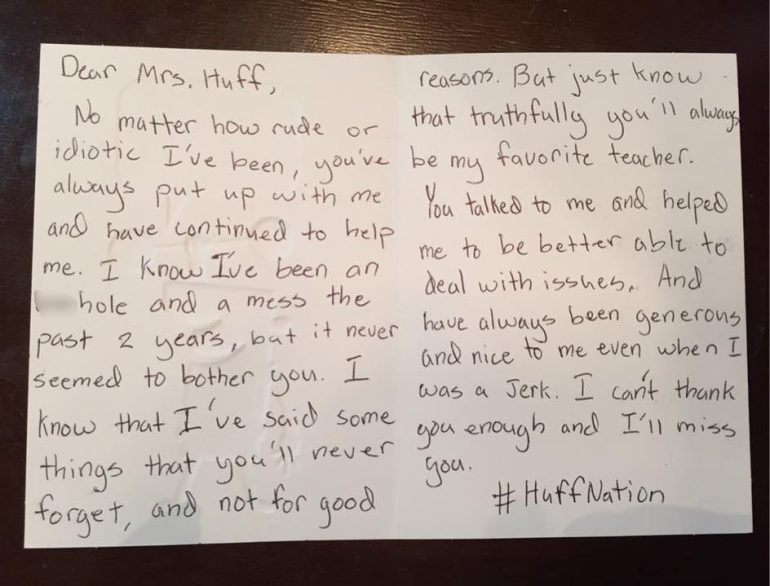 Dear Mrs. Huff,
No matter how rude or
idiotic I've been, you've
always put up with me
and have continued to help
me. I know I've been an
hole and a mess the
past 2 years, but it never
seemed to bother you. I
know that I've said some
things that you'll never
forget, and not for good
reasons. But just know
that truthfully you'll always
be my favorite teacher.
You talked to me and helped
me to be better able to
deal with issues. And
have always been generous
and nice to me even when I
was a Jerk. I can't thank
you enough and I'll miss
you.
#HuffNation